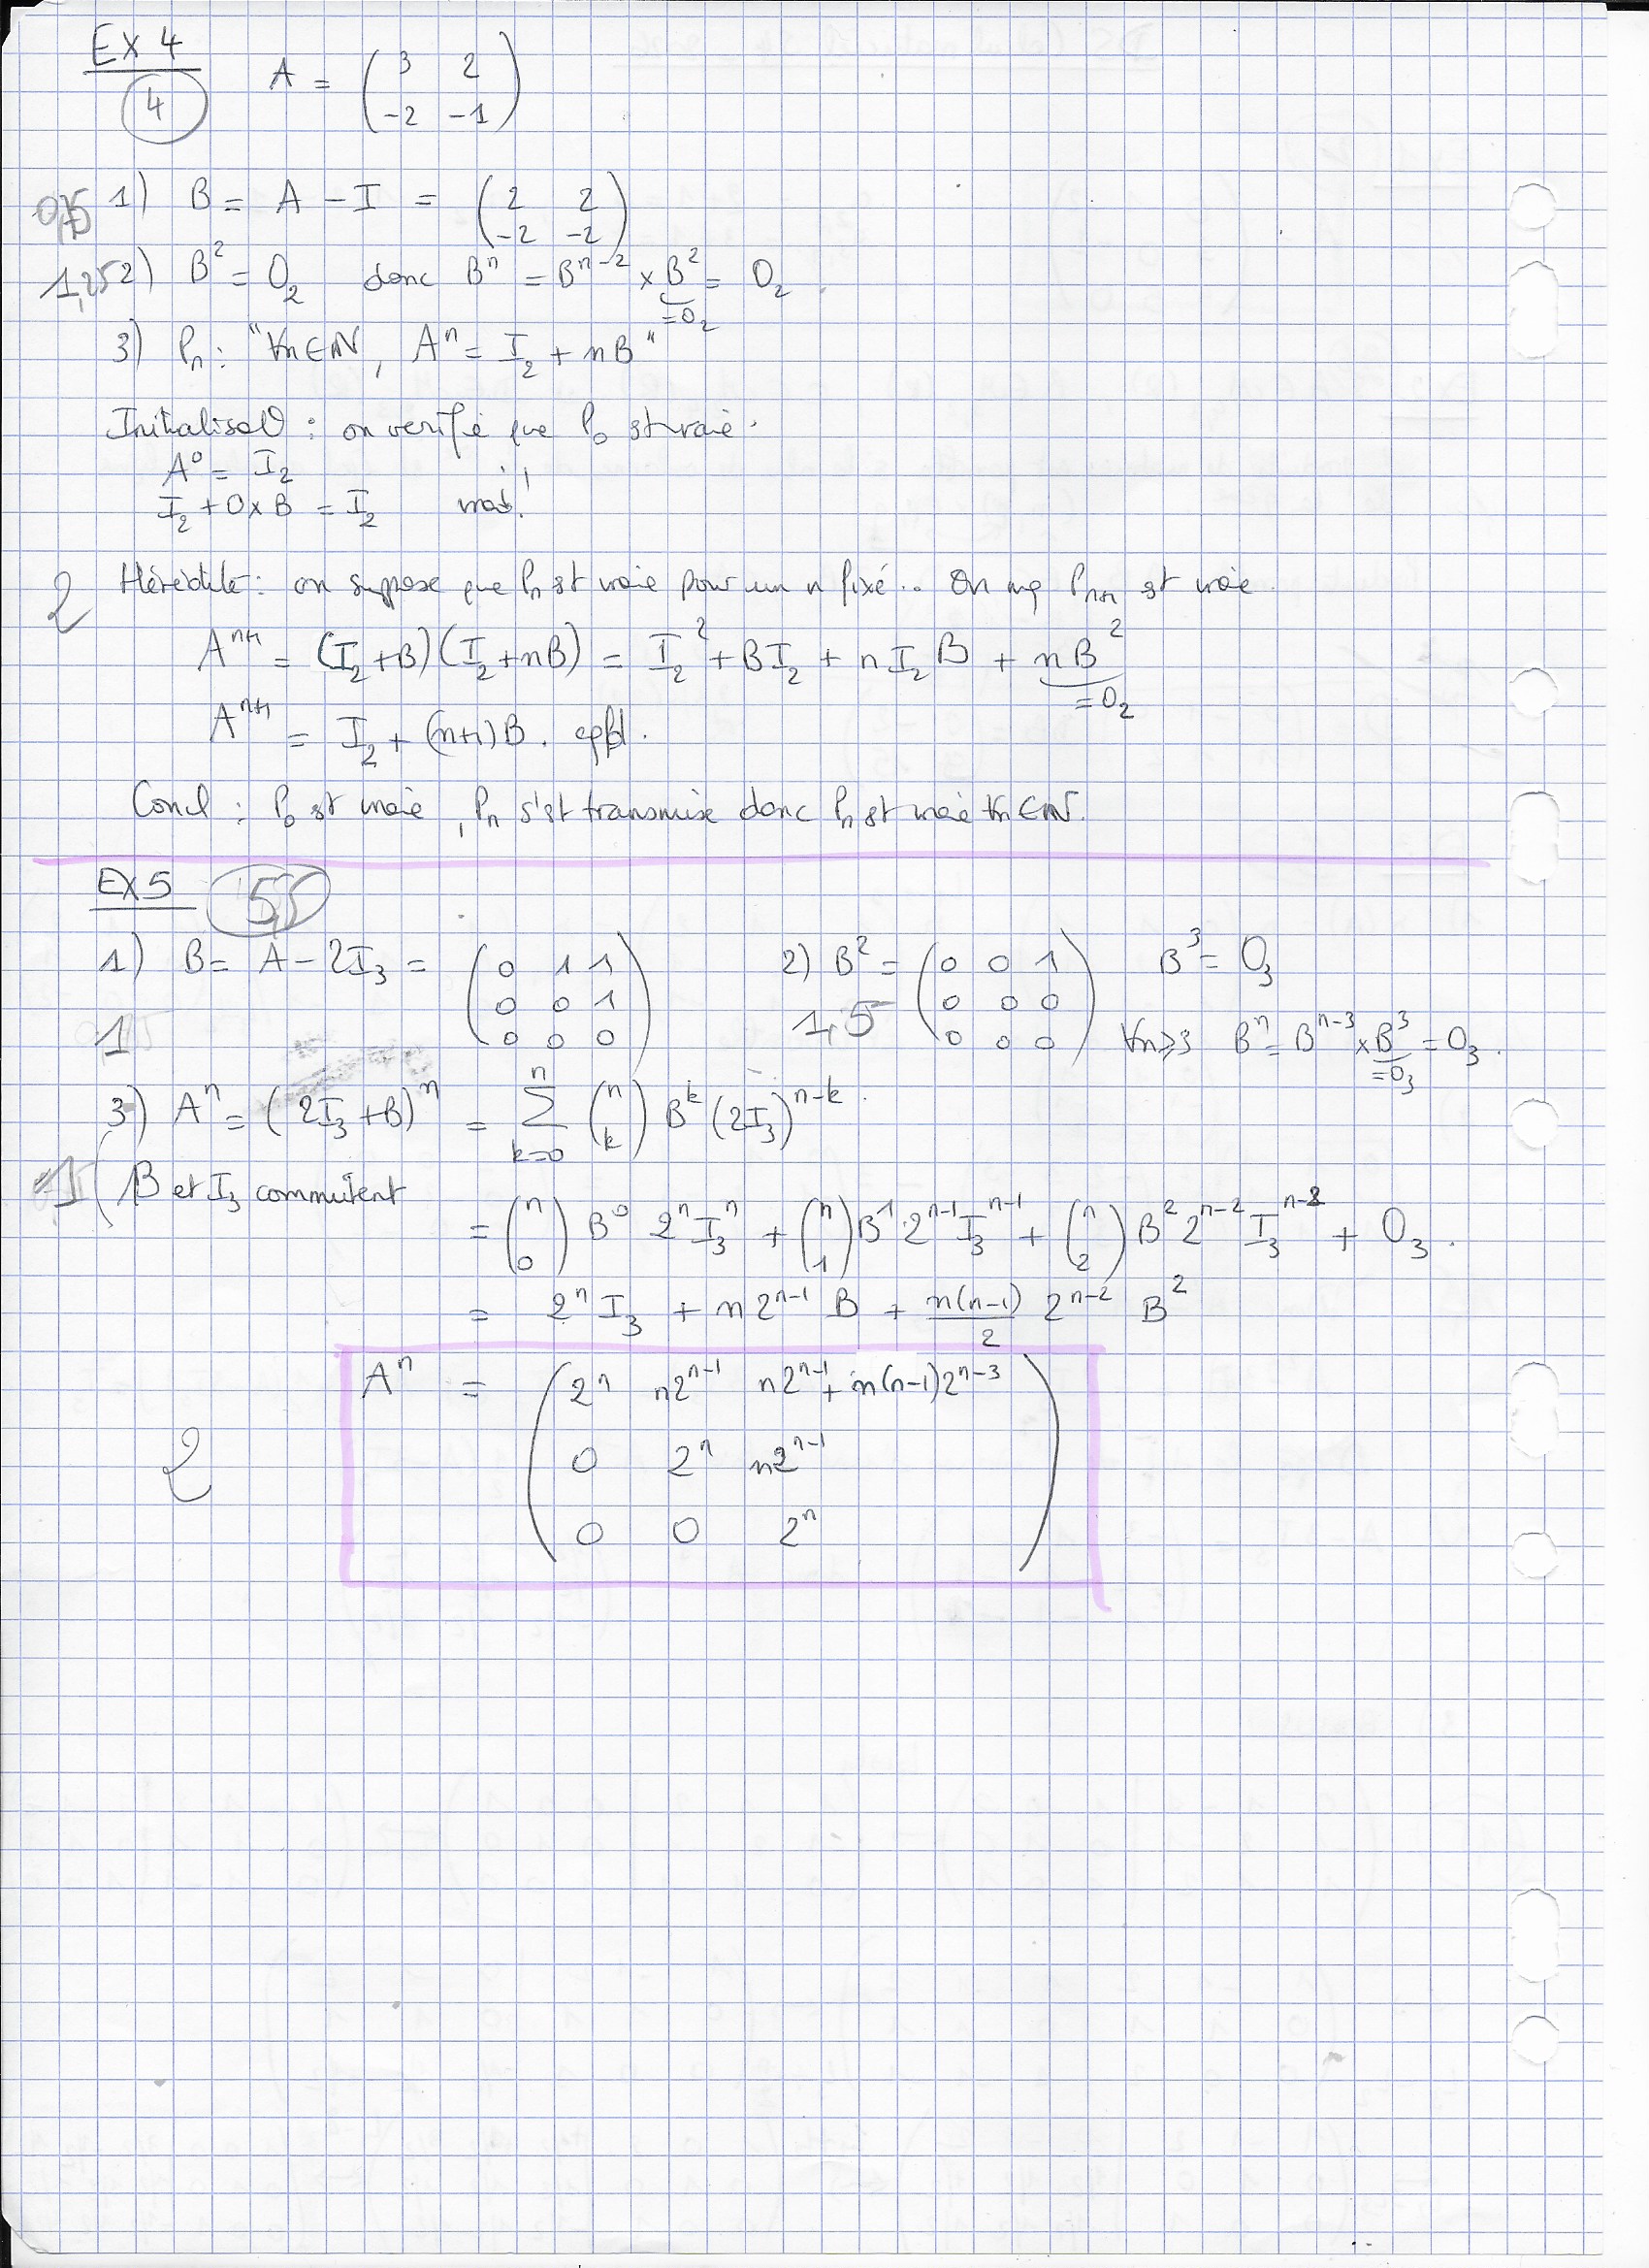 EX 4
4
A = ( 3 2 ; -2 -1 )
0,75 1) B = A - I = ( 2 2 ; -2 -2 )
1,25 2) B² = O₂ donc Bⁿ = Bⁿ⁻² × B² = O₂
= O₂
3) Pₙ : "∀n∈ℕ, Aⁿ = I₂ + nB"
Initialisat° : on verifie que P₀ est vraie.
A⁰ = I₂
I₂ + 0×B = I₂ vrai!
2 Hérédité : on suppose que Pₙ est vraie pour un n fixé.. On mq Pₙ₊₁ est vraie.
Aⁿ⁺¹ = (I₂+B)(I₂+nB) = I₂² + BI₂ + nI₂B + nB²
= O₂
Aⁿ⁺¹ = I₂ + (n+1)B. cqfd.
Concl : P₀ est vraie, Pₙ s'est transmise donc Pₙ est vraie ∀n∈ℕ.
EX 5 5,5
1) B = A - 2I₃ = ( 0 1 1 ; 0 0 1 ; 0 0 0 ) 2) B² = ( 0 0 1 ; 0 0 0 ; 0 0 0 ) B³ = O₃
1 1,5 ∀n⩾3 Bⁿ = Bⁿ⁻³ × B³ = O₃.
= O₃
3) Aⁿ = (2I₃ + B)ⁿ = Σ_{k=0}^{n} (n k) Bᵏ (2I₃)ⁿ⁻ᵏ.
1 ( B et I₃ commutent
= (n 0) B⁰ 2ⁿ I₃ⁿ + (n 1) B¹ 2ⁿ⁻¹ I₃ⁿ⁻¹ + (n 2) B² 2ⁿ⁻² I₃ⁿ⁻² + O₃.
= 2ⁿ I₃ + n 2ⁿ⁻¹ B + n(n-1)/2 2ⁿ⁻² B²
Aⁿ = ( 2ⁿ n2ⁿ⁻¹ n2ⁿ⁻¹ + n(n-1)2ⁿ⁻³ ; 0 2ⁿ n2ⁿ⁻¹ ; 0 0 2ⁿ )
2